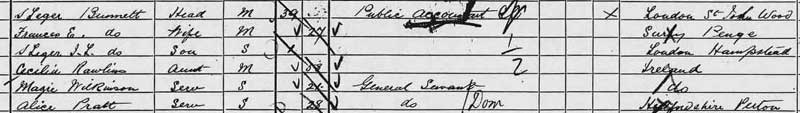 St Leger Bunnett Head M 39 Public Accountant x London St John Wood
Frances E. do Wife M 27 Surry Penge
St Leger I.L. do Son S 1 London Hampstead
Cecilia Rawlins Aunt M Ireland
Magie Wilkinson Serv S 21 General Servant do
Alice Pratt Serv S 28 do Dom